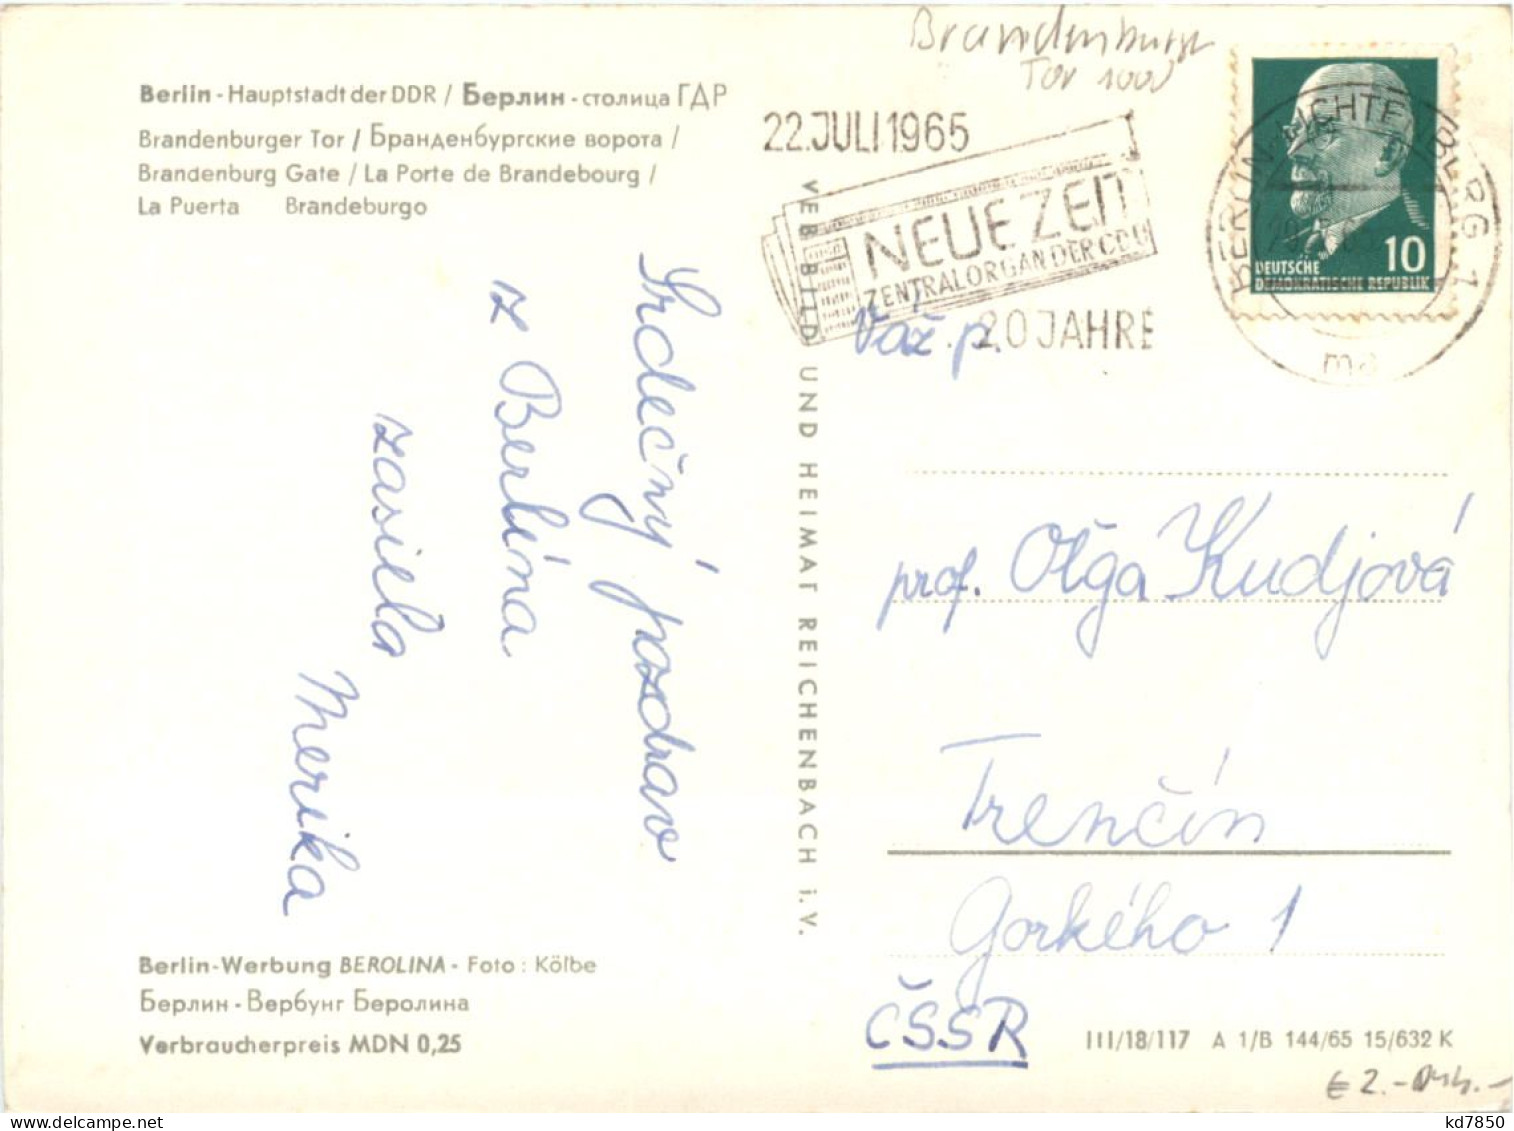 Brandenburger
Tor 1000
Berlin - Hauptstadt der DDR / Берлин - столица ГДР
Brandenburger Tor / Бранденбургские ворота /
Brandenburg Gate / La Porte de Brandebourg /
La Puerta Brandeburgo
22.JULI1965
NEUE ZEIT
ZENTRALORGAN DER CDU
20 JAHRE
BERLIN-LICHTENBERG 1
10
DEUTSCHE
DEMOKRATISCHE REPUBLIK
Srdečný pozdrav
z Berlína
zasiela
Merika
VEB BILD UND HEIMAT REICHENBACH i.V.
Váž. p.
prof. Oľga Kudjová
Trenčín
Gorkého 1
ČSSR
Berlin-Werbung BEROLINA - Foto : Kölbe
Берлин - Вербунг Беролина
Verbraucherpreis MDN 0,25
III/18/117 A 1/B 144/65 15/632 K
€ 2.-
kd7850